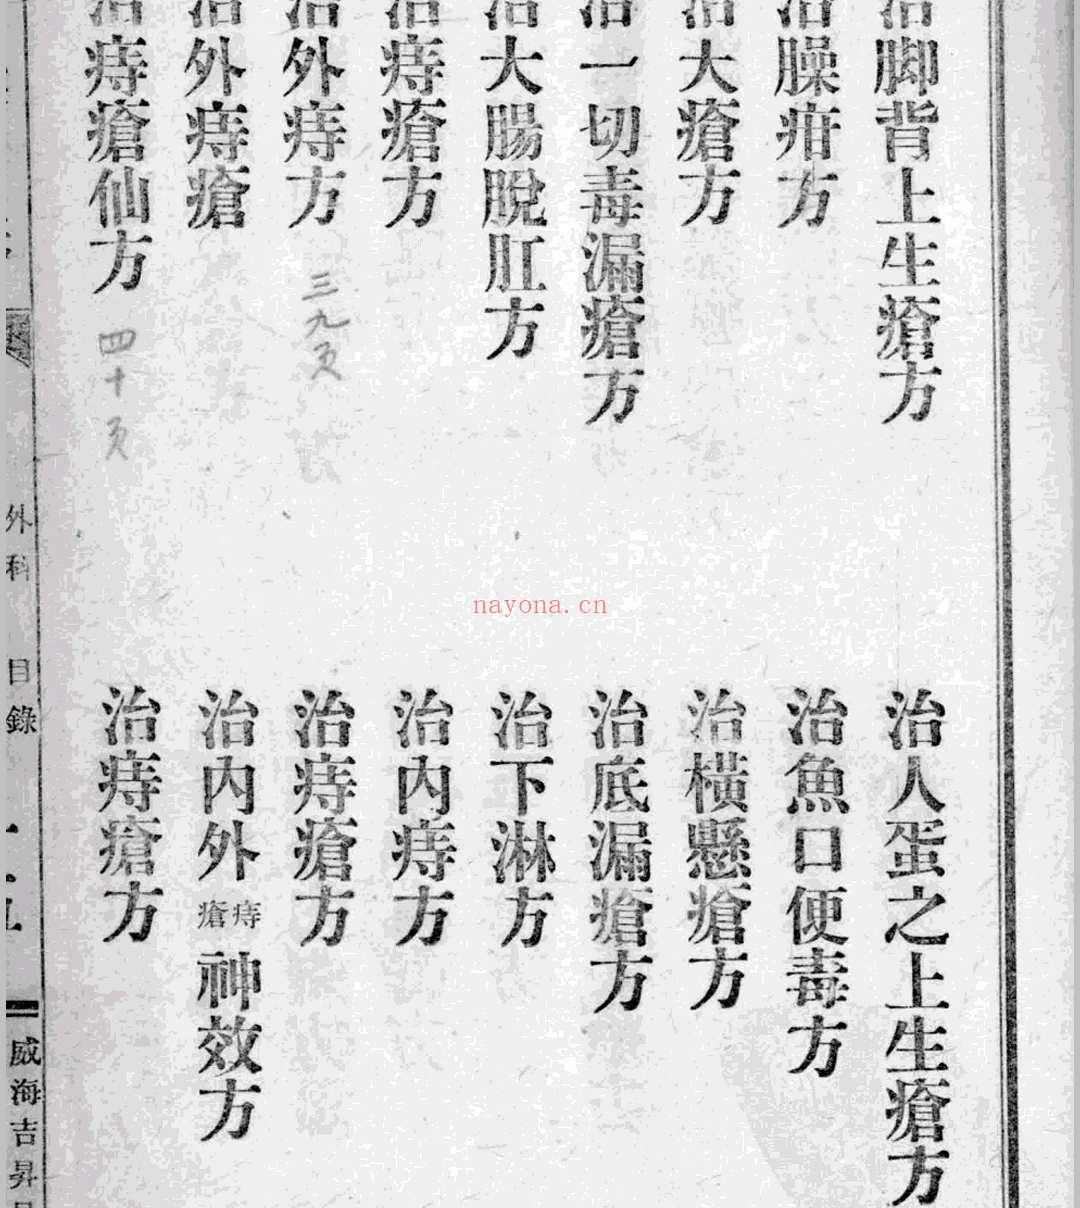 治脚背上生瘡方
治臊疳方
治大瘡方
治一切毒漏瘡方
治大腸脫肛方
治痔瘡方
治外痔方 三九页
治外痔瘡
治痔瘡仙方 四十页
治人蛋之上生瘡方
治魚口便毒方
治橫懸瘡方
治底漏瘡方
治下淋方
治內痔方
治痔瘡方
治內外痔瘡神效方
治痔瘡方
外科 目錄
威海吉昇
nayona.cn